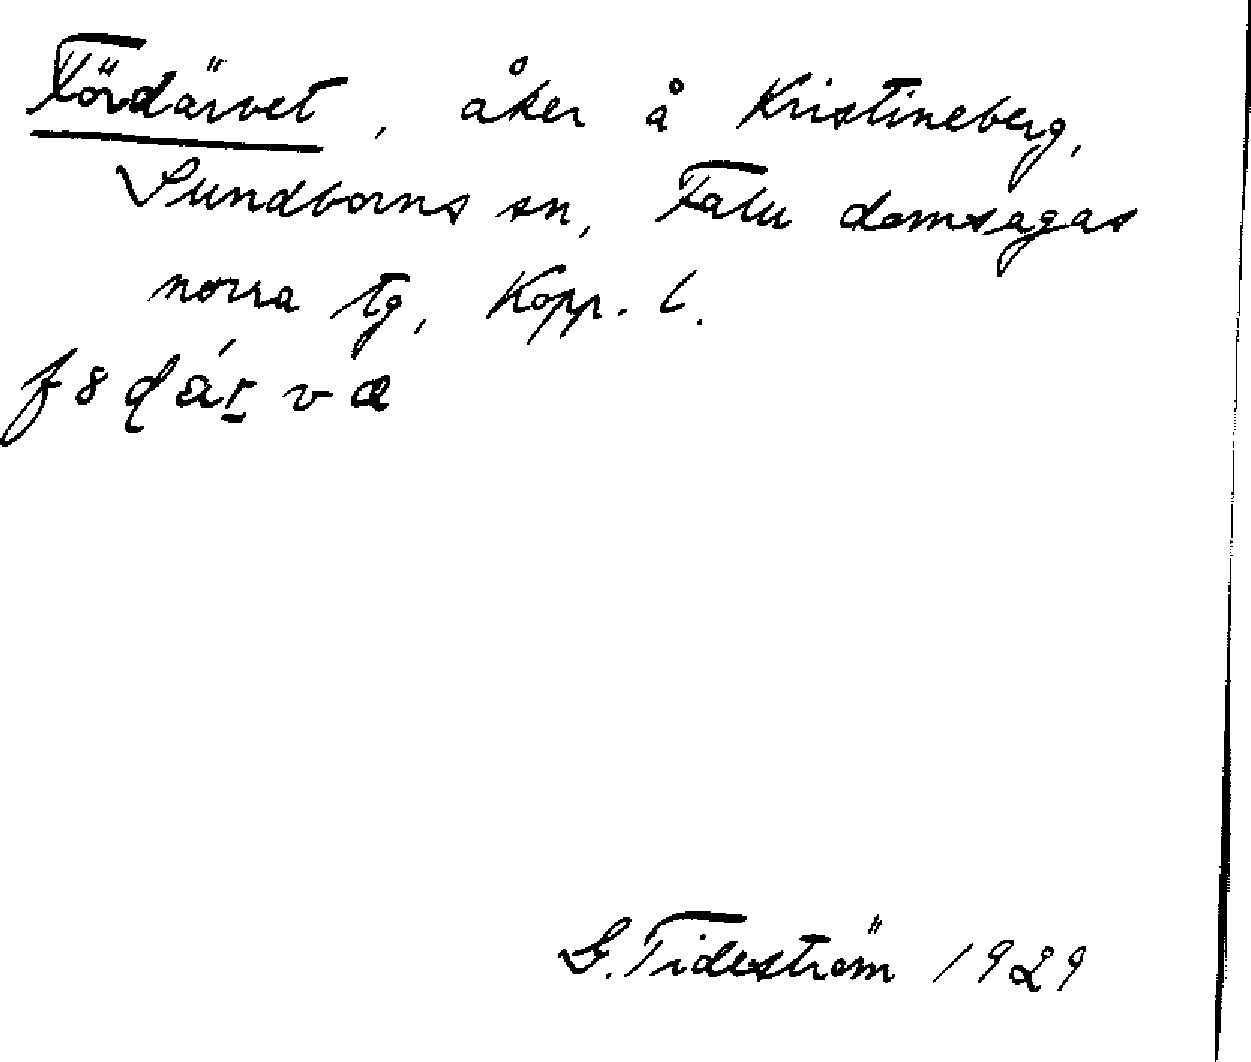 Fördärvet, åker å Kristineberg,
Sundborns sn, Falu domsagas
norra tg, Kopp. l.
G. Tideström 1929